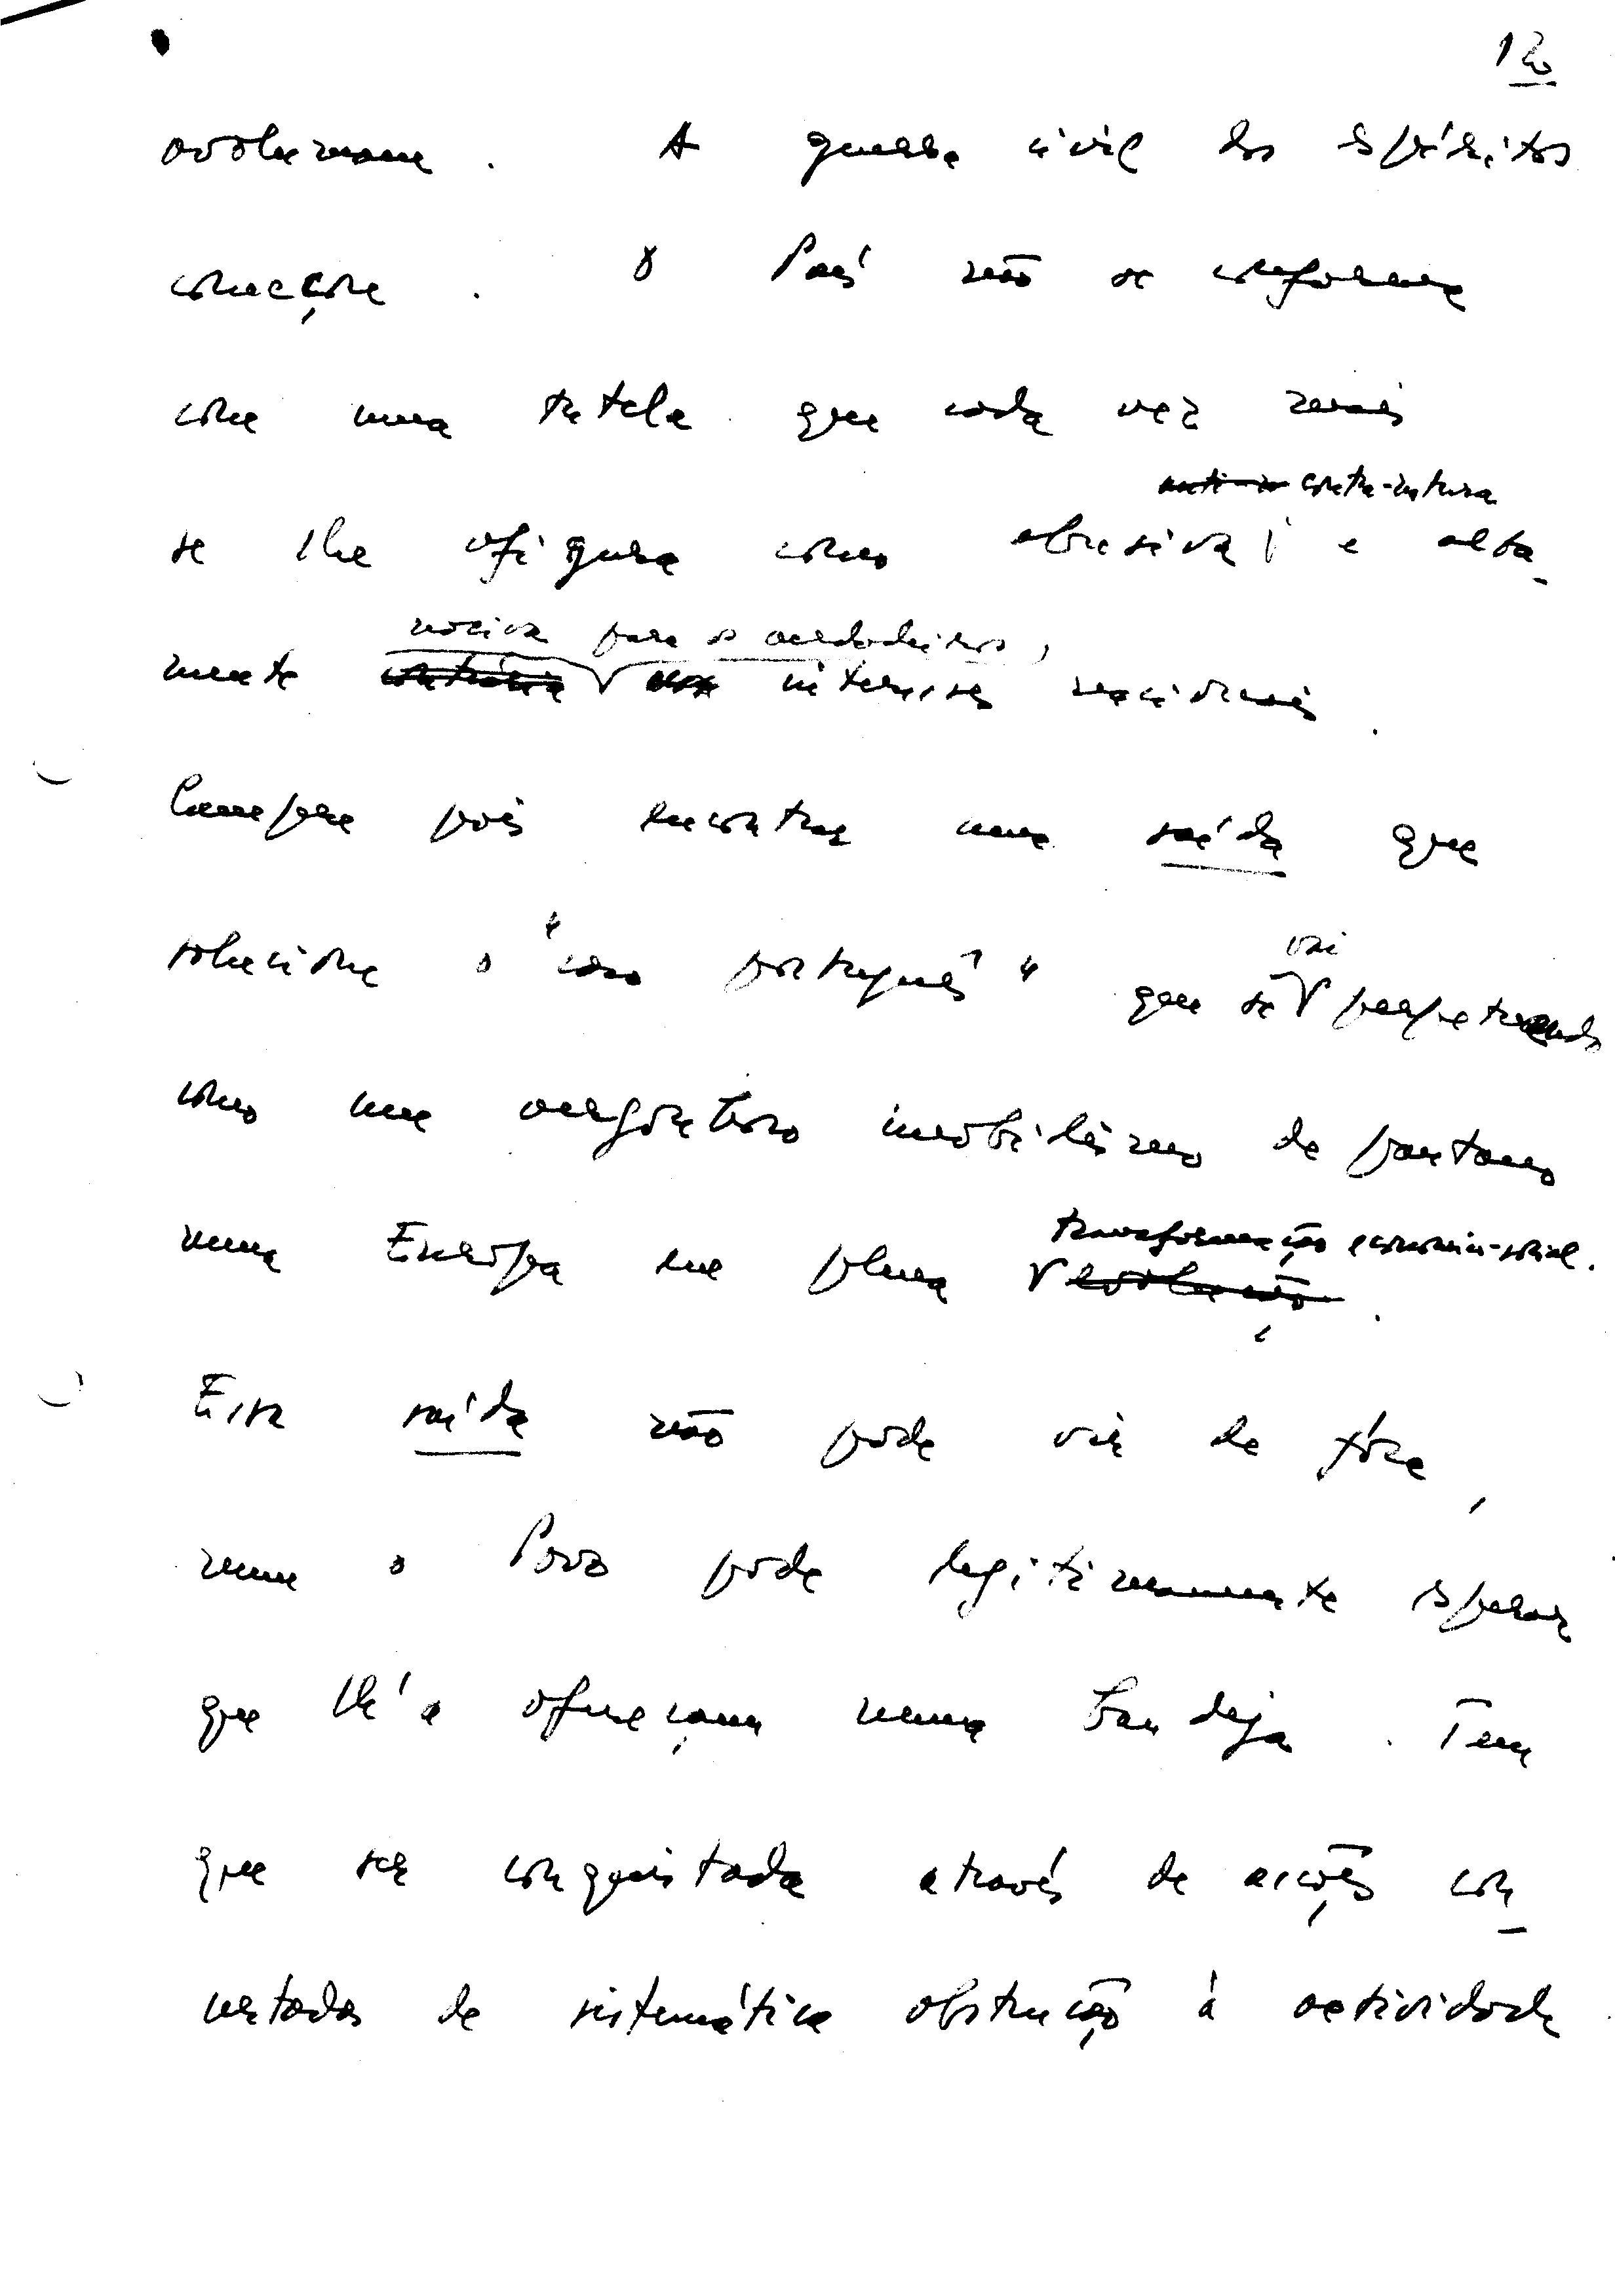 12
avolumam. A guerra civil dos espíritos
começou. O País não se conforma
com uma tutela que cada vez mais
contra-natura
se lhe afigura como abusiva, e alta-
nociva para os verdadeiros,
mente contrária aos interesses nacionais.
Cumpre pois encontrar uma saída que
vai
solucione o "caso português" que se perpetuando
como um vergonhoso imobilismo de pantano
transformação economico-social.
numa Europa em plena evolução.
Essa saída não pode vir de fóra,
nem o Povo pode legitimamente esperar
que lh'a ofereçam numa bandeja. Tem
que ser conquistada através de acções con-
certadas de sistemática obstrução á actividade